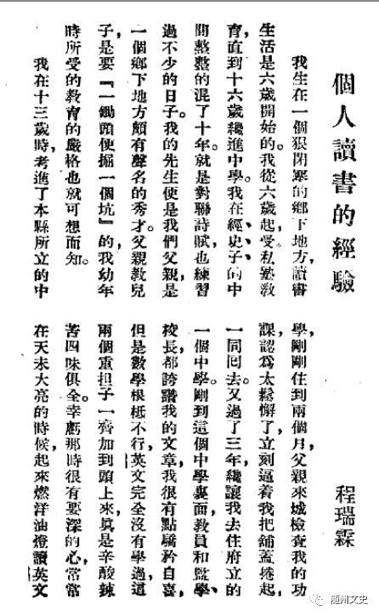 個人讀書的經驗
程瑞霖
我生在一個狠閉塞的鄉下地方,讀書
生活是六歲開始的。我從六歲起受私塾教
育,直到十六歲纔進中學。我在經、史、子的中
間整整的混了十年。就是對聯詩賦,也練習
過不少的日子。我的先生便是我們父親,是
一個鄉下地方頗有聲名的秀才。父親教兒
子,是要『一鋤頭便掘一個坑』的,我幼年
時所受的教育的嚴格也就可想而知。
我在十三歲時,考進了本縣所立的中
學,剛剛住到兩個月,父親來城檢查我的功
課,認爲太鬆懈了,立刻逼着我把舖蓋捲起,
一同囘去。又過了三年,纔讓我去住府立的
一個中學。剛到這個中學裏面,教員和監學、
校長都誇讚我的文章,我很有點驕矜自喜,
但是數學根柢不行,英文完全沒有學過,這
兩個重担子一齊加到頭上來,真是辛酸辣
苦四味俱全。幸虧那時很有要深的心,常常
在天未大亮的時候,起來燃洋油燈讀英文
随州文史